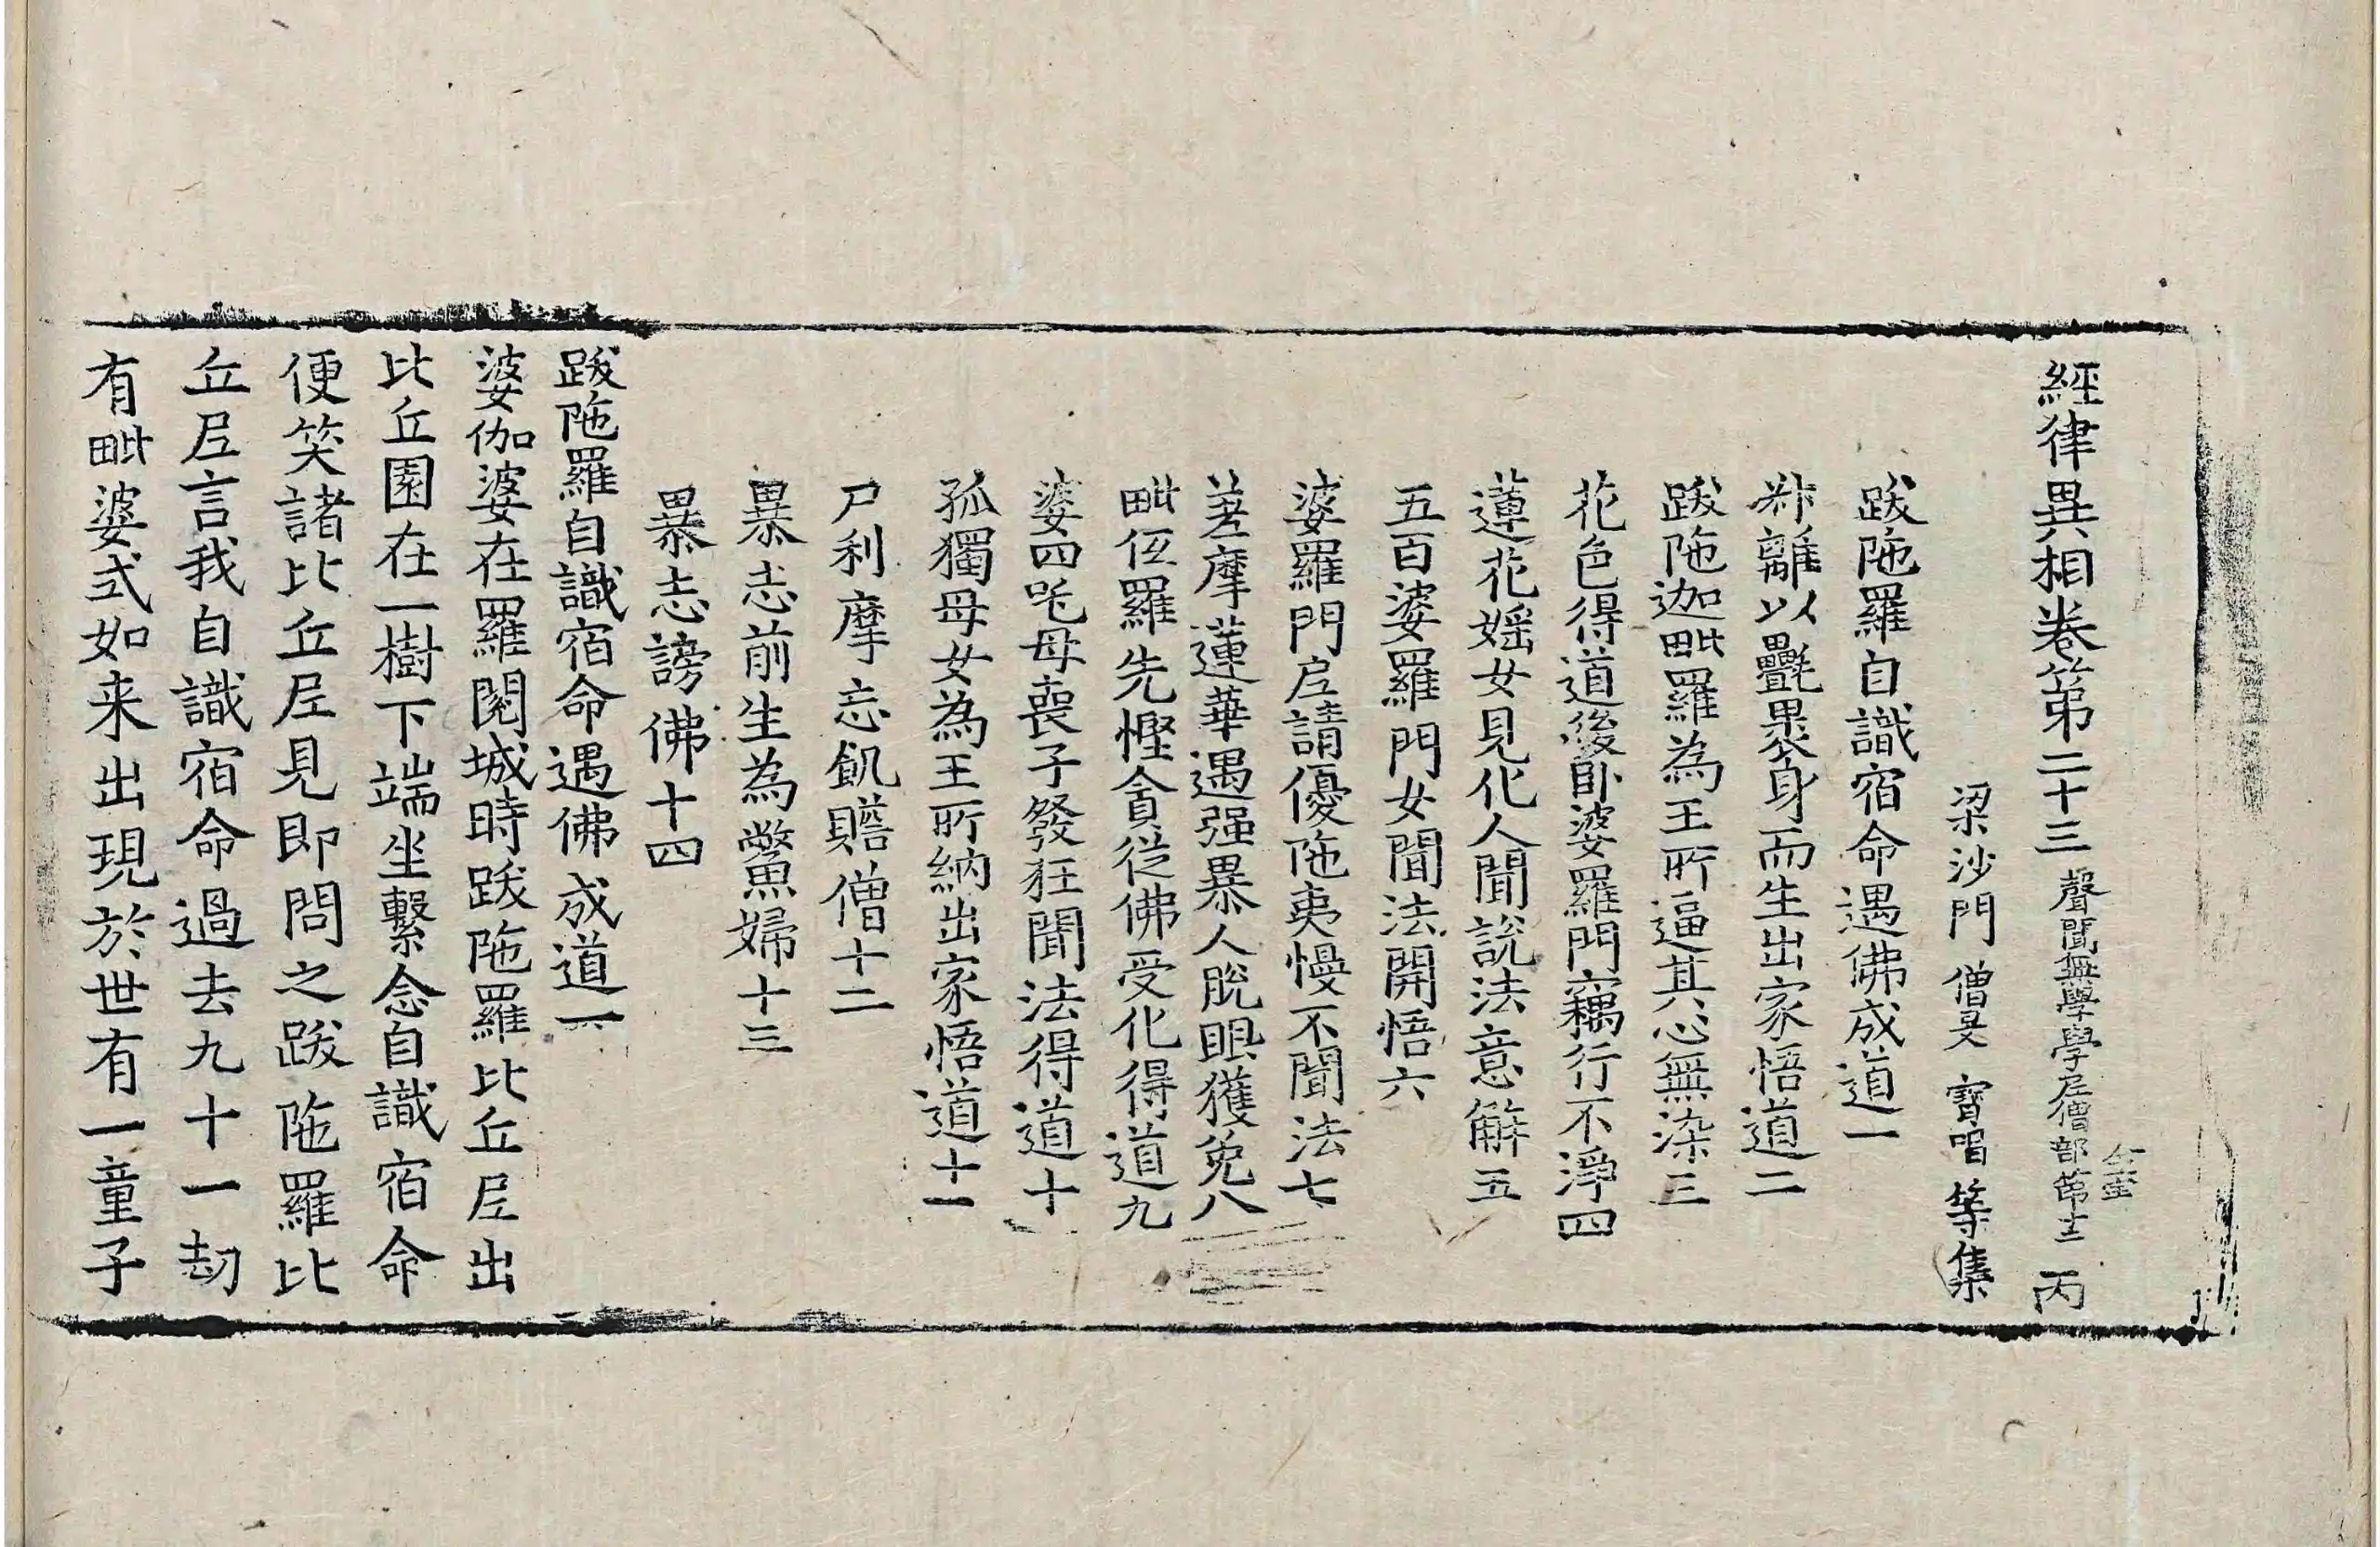 經律異相卷第二十三 聲聞無學學尼僧部第十二 丙
梁沙門 僧旻 寶唱 等集
跋陁羅自識宿命遇佛成道一
叔離以㲲裹身而生出家悟道二
跋陁迦毗羅為王所逼其心無染三
花色得道後卧婆羅門竊行不淨四
蓮花婬女見化人聞說法意解五
五百婆羅門女聞法開悟六
婆羅門尼請優陁夷慢不聞法七
差摩蓮華遇强暴人脫眼獲免八
毗伍羅先慳貪從佛受化得道九
婆四吒母喪子發狂聞法得道十
孤獨母女為王所納出家悟道十一
尸利摩忘飢贍僧十二
暴志前生為鱉婦十三
暴志謗佛十四
跋陁羅自識宿命遇佛成道一
婆伽婆在羅閱城時跋陁羅比丘尼出
比丘園在一樹下端坐繫念自識宿命
便笑諸比丘尼見即問之跋陁羅比
丘尼言我自識宿命過去九十一劫
有毗婆式如来出現於世有一童子